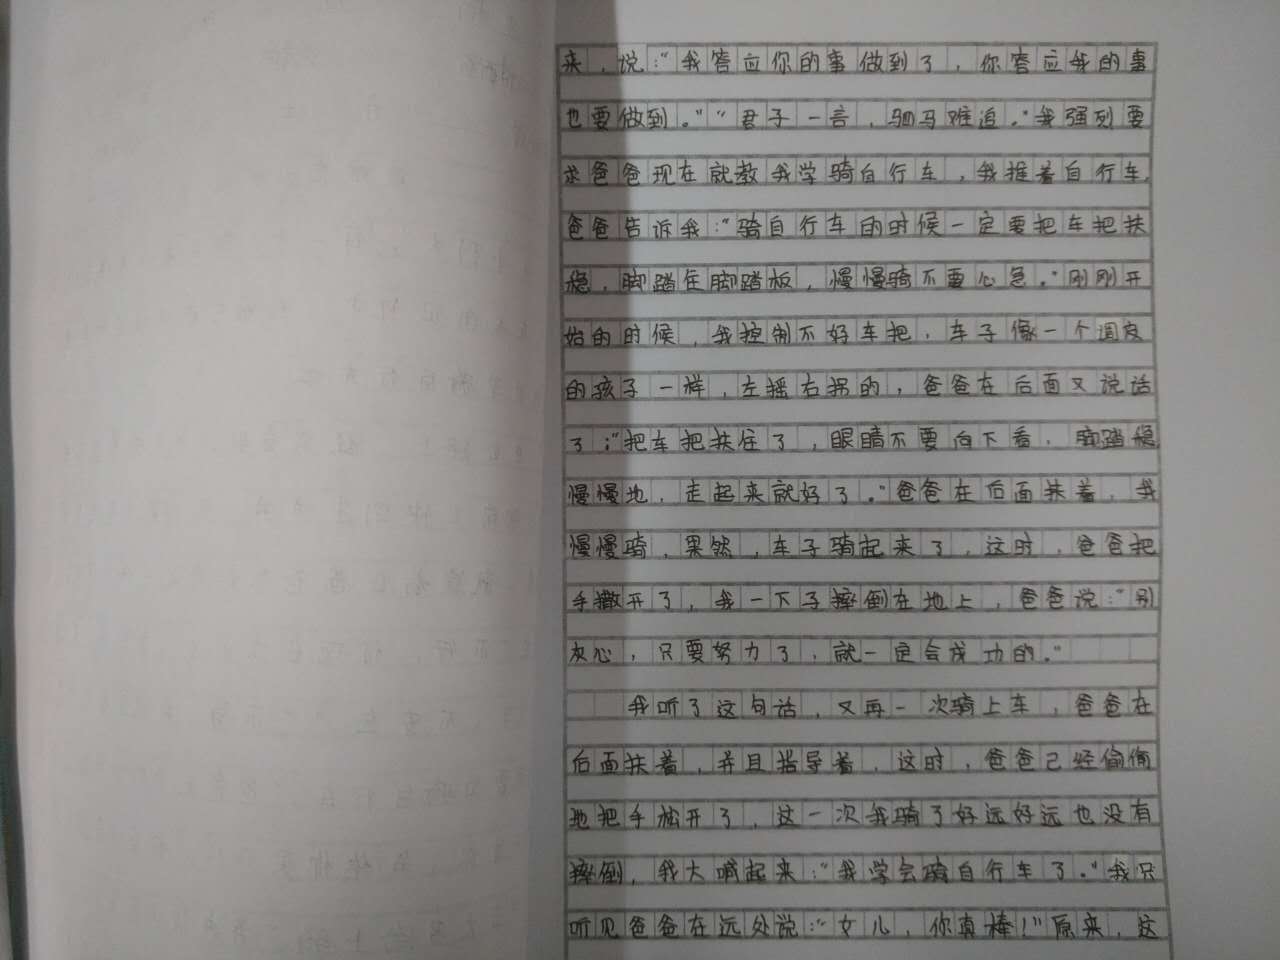 来，说：“我答应你的事做到了，你答应我的事
也要做到。”“君子一言，驷马难追。”我强列要
求爸爸现在就教我学骑自行车，我推着自行车，
爸爸告诉我：“骑自行车的时候一定要把车把扶
稳，脚踏住脚踏板，慢慢骑不要心急。”刚刚开
始的时候，我控制不好车把，车子像一个调皮
的孩子一样，左摇右拐的，爸爸在后面又说话
了：“把车把扶住了，眼睛不要向下看，脚踏稳
慢慢地，走起来就好了。”爸爸在后面扶着，我
慢慢骑，果然，车子骑起来了，这时，爸爸把
手撒开了，我一下子摔倒在地上，爸爸说：“别
灰心，只要努力了，就一定会成功的。”
我听了这句话，又再一次骑上车，爸爸在
后面扶着，并且指导着，这时，爸爸已经偷偷
地把手松开了，这一次我骑了好远好远也没有
摔倒，我大喊起来：“我学会骑自行车了。”我只
听见爸爸在远处说：“女儿，你真棒！”原来，这